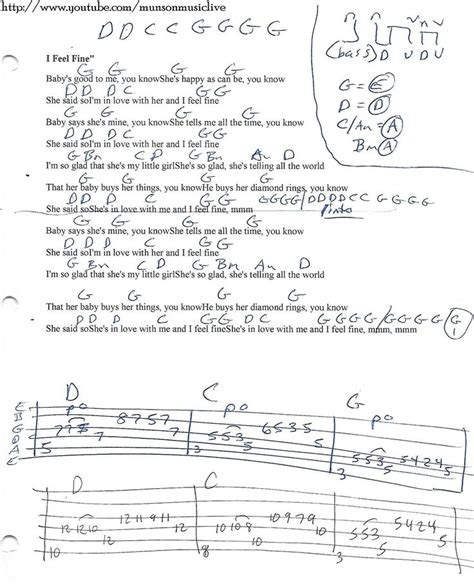 http://www.youtube.com/munsonmusiclive
D D C C G G G G
V n V
(bass) D U D U
I Feel Fine"
G = E
D = D
C/Am = A
Bm A
G G G G
Baby's good to me, you knowShe's happy as can be, you know
D D D C G G
She said soI'm in love with her and I feel fine
G G G G
Baby says she's mine, you knowShe tells me all the time, you know
D D D C G G
She said soI'm in love with her and I feel fine
G Bm C D G Bm Am D
I'm so glad that she's my little girlShe's so glad, she's telling all the world
G G G G
That her baby buys her things, you knowHe buys her diamond rings, you know
D D D C G G GGGG/DDDDCC GGGG
She said soShe's in love with me and I feel fine, mmm
G G G G
Baby says she's mine, you knowShe tells me all the time, you know
D D D C G G
She said soI'm in love with her and I feel fine
G Bm C D G Bm Am D
I'm so glad that she's my little girlShe's so glad, she's telling all the world
G G G G
That her baby buys her things, you knowHe buys her diamond rings, you know
D D D C GG D C GGGG/GGGG/G
She said soShe's in love with me and I feel fineShe's in love with me and I feel fine, mmm, mmm
D C G
po po po
E
B 8757 6535
G 777 7 553 5 5424
D 7 5 553 5
A 5 3
E 3
D C
12 11 9 11 10 9 7 9 5424
12 12 10 12 10 10 8 10 553 5
10 8 3